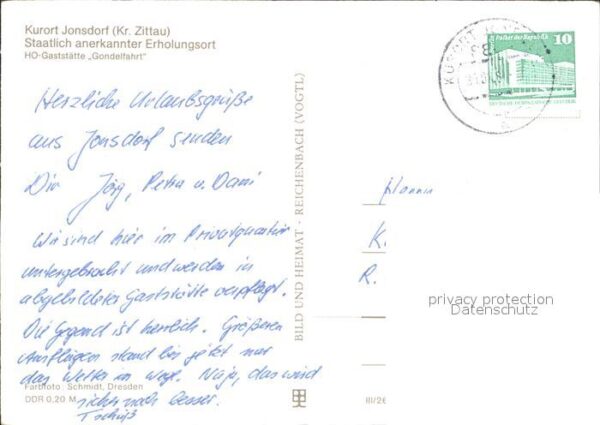 Kurort Jonsdorf (Kr. Zittau)
Staatlich anerkannter Erholungsort
HO-Gaststätte „Gondelfahrt"
Herzliche Urlaubsgrüße
aus Jonsdorf senden
Dir Jörg, Petra u. Dani
Wir sind hier im Privatquartier
untergebracht und werden in
abgebildeter Gaststätte verpflegt.
Die Gegend ist herrlich. Größeren
Ausflügen stand bis jetzt nur
das Wetter im Wege. Naja, das wird
sicher noch besser.
Tschüß
Farbfoto: Schmidt, Dresden
DDR 0,20 M
BILD UND HEIMAT · REICHENBACH (VOGTL)
III/26
KURORT
Palast der Republik
10
DEUTSCHE DEMOKRATISCHE REPUBLIK
K.
R.
privacy protection
Datenschutz